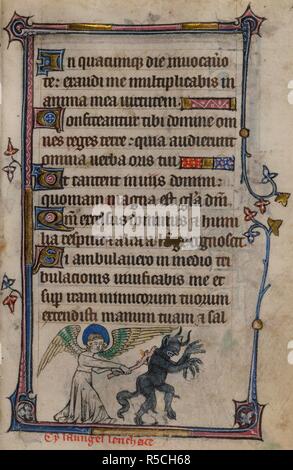 In quacumq; die invocavo
te: exaudi me multiplicabis in
anima mea virtutem.
Confiteantur tibi domine om
nes reges terre: quia audierunt
omnia verba oris tui
Et cantent in viis domini:
quoniam magna est gl̃a dñi.
excelsus dominus & humi
lia respicit & alta a cognoscit
Si ambulavero in medio tri
bulacionis vivificabis me et
sup iram inimicorum tuorum
extendisti manum tuam & sal
alamy
alamy
Image ID: R5CH68
www.alamy.com